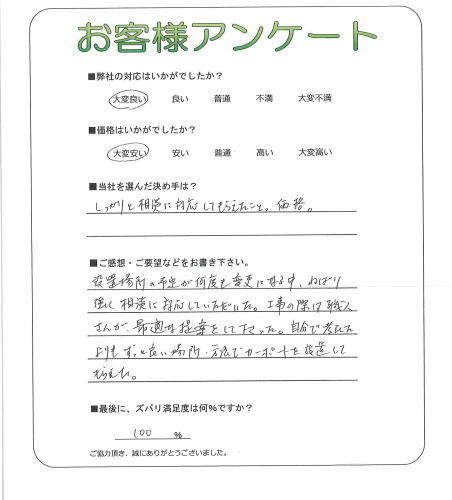 お客様アンケート
■弊社の対応はいかがでしたか?
大変良い 良い 普通 不満 大変不満
■価格はいかがでしたか?
大変安い 安い 普通 高い 大変高い
■当社を選んだ決め手は?
しっかりと相談に対応してもらえたこと。価格。
■ご感想・ご要望などをお書き下さい。
設置場所の予定が何度も変更になる中、ねばり
強く相談に対応していただいた。工事の際は職人
さんが、最適な提案をして下さった。自分で考えた
よりもずっと良い場所・方法でカーポートを設置して
もらえた。
■最後に、ズバリ満足度は何%ですか?
100 %
ご協力頂き、誠にありがとうございました。